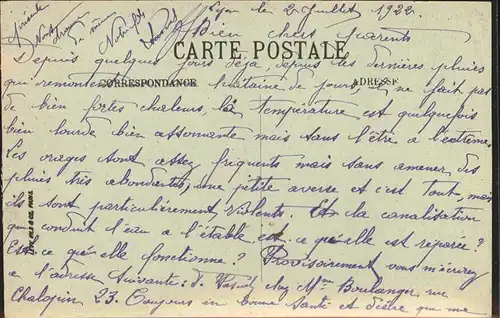 Lyon le 2 Juillet 1922
Bien chers parents
CARTE POSTALE
Depuis quelques jours déjà, depuis les dernières pluies
qui remontent huitaine de jours, il ne fait pas
CORRESPONDANCE ADRESSE
de bien fortes chaleurs, la température est quelquefois
bien lourde bien assomante mais sans l'être à l'extrême.
Les orages sont assez fréquents mais sans amener des
pluies très abondantes, une petite averse et c'est tout, mais
ils sont particulièrement violents. Et la canalisation
qui conduit l'eau à l'étable est ce qu'elle est réparée?
Est ce qu'elle fonctionne? Provisoirement vous m'écrirez
a l'adresse suivante: chez Mme Boulanger rue
Chalopin 23. Toujours en bonne santé et désire que ma